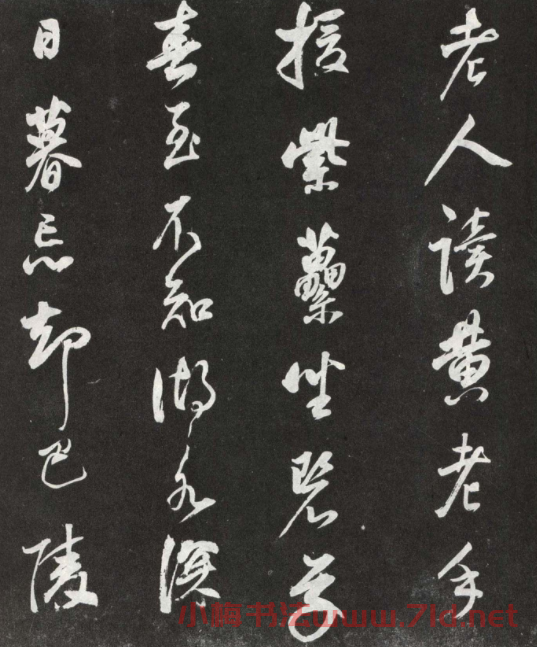 老人讀黄老手
援紫虆坐碧草
春至不知湖水深
日暮忘却巴陵
书法www.7ld.net